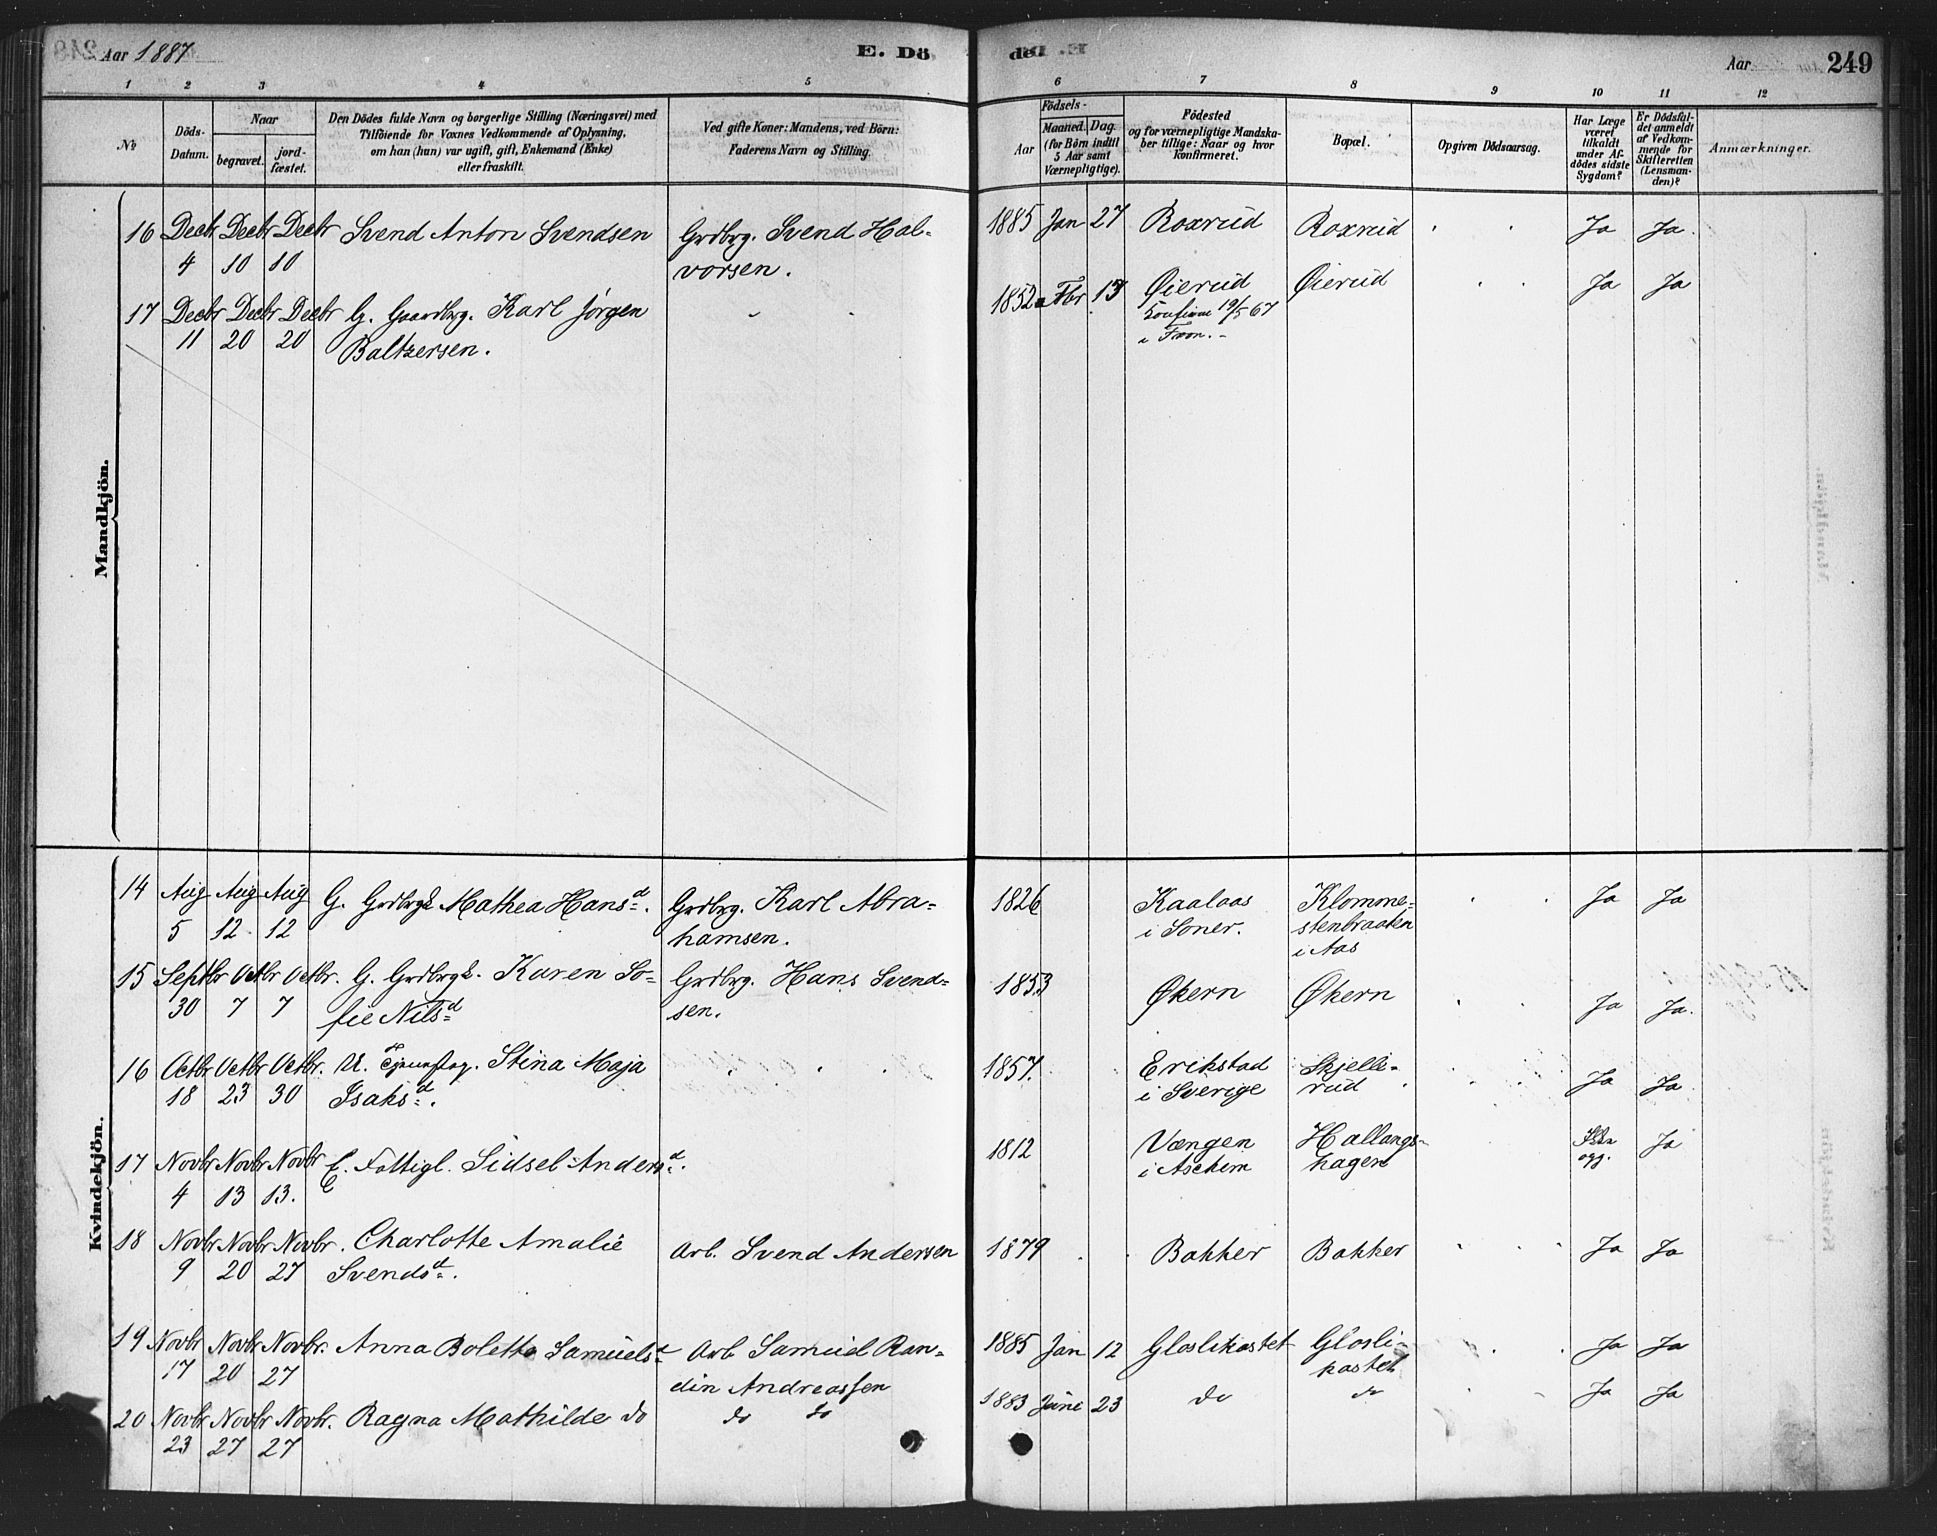 Aar 1887 E. Dö
döde. Aar 249
1 2 3 4 5
6 7 8 9 10 11 12
No
Döds-Datum.
Naar
begravet.
jord-fæstet.
Den Dödes fulde Navn og borgerlige Stilling (Næringsvei) med
Tilföiende for Voxnes Vedkommende af Oplysning,
om han (hun) var ugift, gift, Enkemand (Enke)
eller fraskilt.
Ved gifte Koner: Mandens, ved Börn:
Faderens Navn og Stilling.
Födsels-
Aar
Maaned. Dag.
(for Börn indtil
5 Aar samt
Værnepligtige).
Födested
og for værnepligtige Mandska-
ber tillige: Naar og hvor
konfirmeret.
Bopæl.
Opgiven Dödsaarsag.
Har Læge
været
tilkaldt
under Af-
dödes sidste
Sygdom?
Er Dödsfal-
det anmeldt
af Vedkom-
mende for
Skifteretten
(Lensman-
den)?
Anmærkninger.
Mandkjön.
16 Decbr Decbr Decbr Svend Anton Svendsen Grdbrg. Svend Hal- 1885 Jan 27 Roxrud Roxrud Ja Ja.
4 10 10 vorsen.
17 Decbr Decbr Decbr G. Gaardbrg. Karl Jørgen 1852 Fbr 13 Øierud Øierud Ja Ja
11 20 20 Baltzersen. Konfirm 19/5 67
i Fron.
Kvindekjön.
14 Aug Aug Aug G. Grdbrgk Mathea Hansd. Grdbrg. Karl Abra- 1826 Kaalaas Klomme- Ja Ja
5 12 12 hamsen. i Soner. stenbraaten
i Aas
15 Septbr Octbr Octbr. G. Grdbrgk. Karen So- Grdbrg. Hans Svend- 1853 Økern Økern Ja Ja.
30 7 7 fie Nilsd sen.
16 Octbr Octbr Octbr. U. Stina Maja 1857. Erikstad Skjelle- Ja Ja
18 23 30 Isaksd. i Sverige rud
17 Novbr Novbr Novbr E. Fattigl. Sidsel Andersd. 1812 Vængen Hallangs- Ja
4 13 13. i Aschim hagen
18 Novbr Novbr Novbr. Charlotte Amalie Arb. Svend Andersen 1879 Bakker Bakker Ja Ja
9 20 27 Svendsd.
19 Novbr Novbr Novbr. Anna Bolette Samuelsd Arb. Samuel Ran- 1885 Jan 12 Gloslikastet Glosli- Ja Ja
17 20 27 din Andreassen kastet
20 Novbr Novbr Novbr. Ragna Mathilde do do do 1883 Juni 23 do do Ja Ja
23 27 27